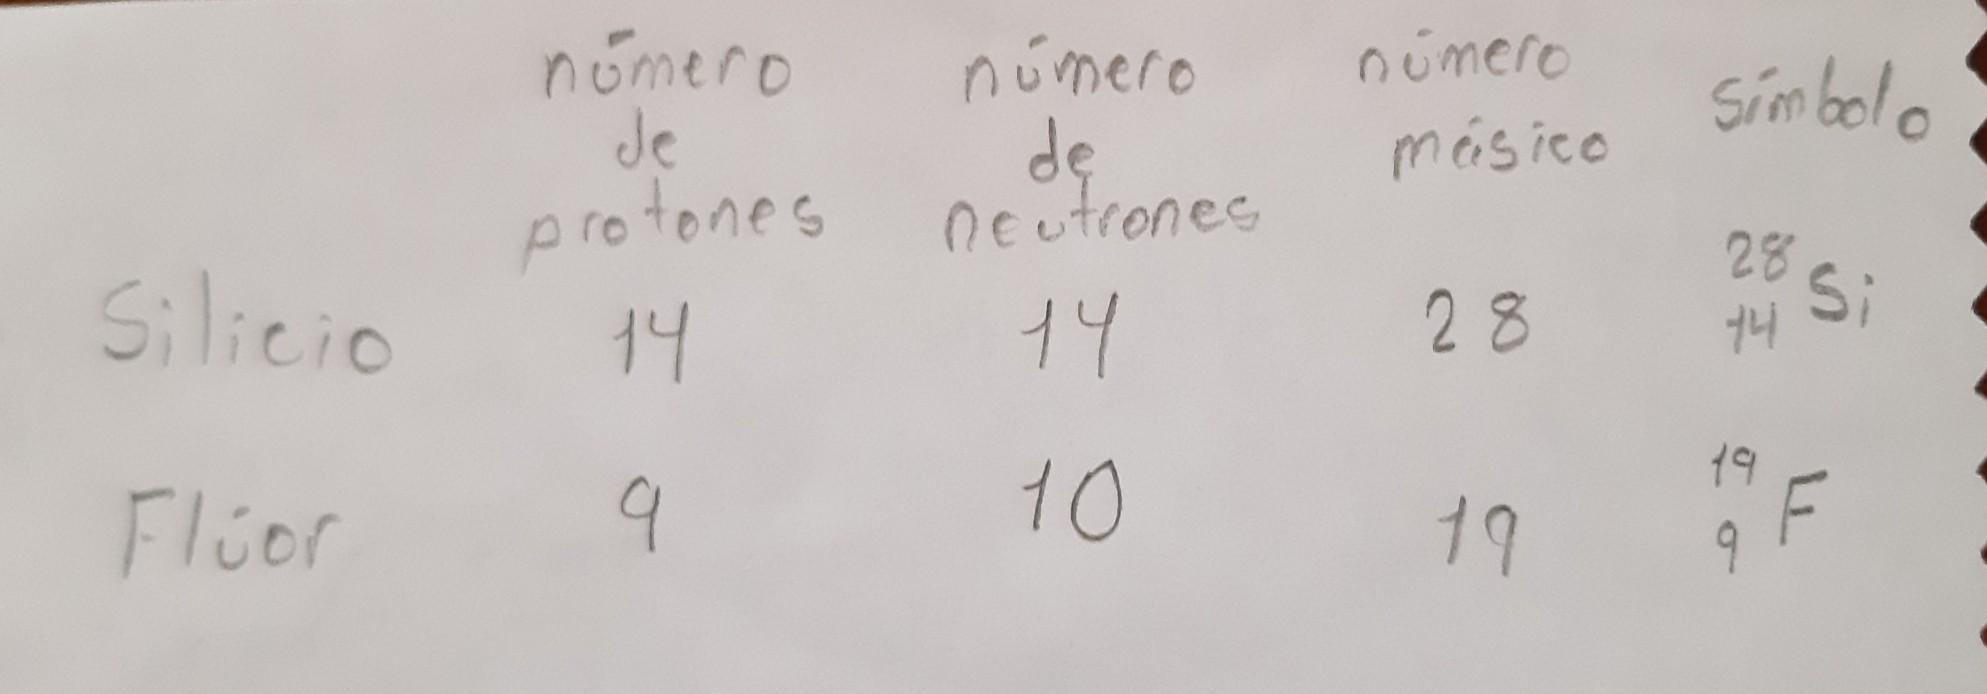 número número número símbolo
de de másico
protones neutrones
Silicio 14 14 28 28 14 Si
Flúor 9 10 19 19 9 F